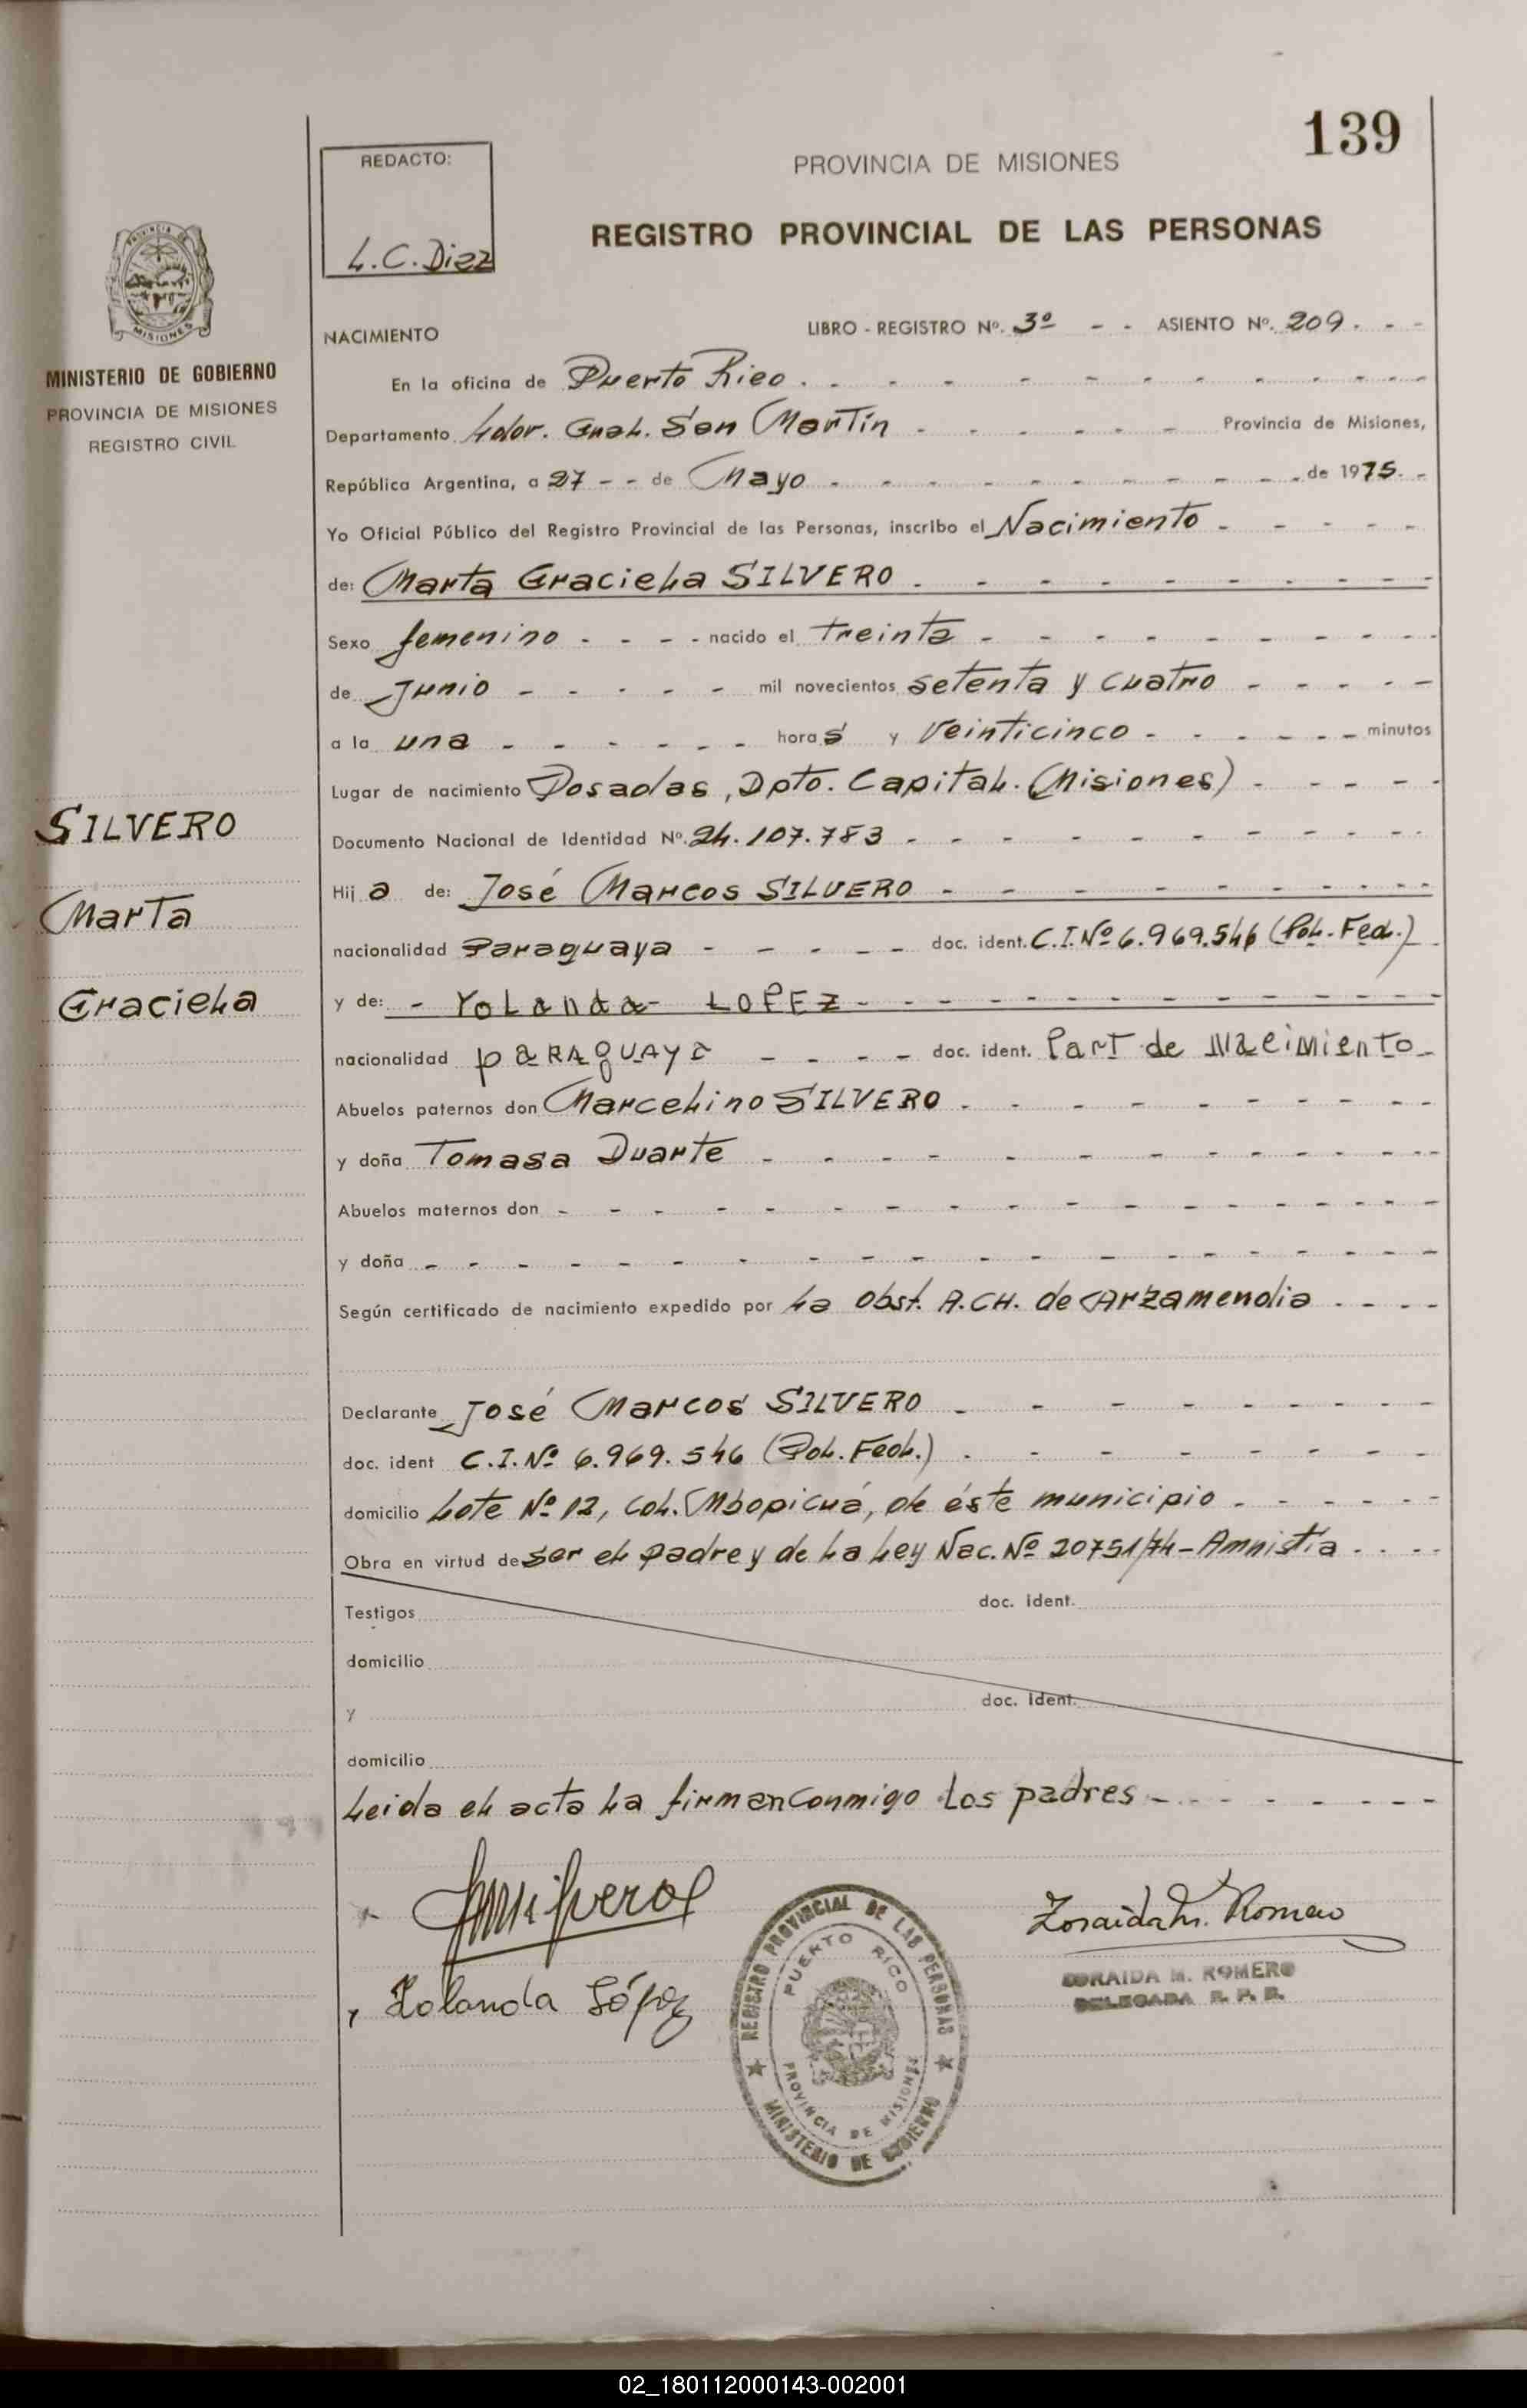 139
REDACTO:
L.C. Diez
PROVINCIA DE MISIONES
REGISTRO PROVINCIAL DE LAS PERSONAS
MISIONES
MINISTERIO DE GOBIERNO
PROVINCIA DE MISIONES
REGISTRO CIVIL
NACIMIENTO LIBRO - REGISTRO Nº. 3º - - ASIENTO Nº. 209. - -
En la oficina de Puerto Rico.
Departamento Ldor. Gral. San Martín Provincia de Misiones,
República Argentina, a 27 - - de Mayo de 1975. -
Yo Oficial Público del Registro Provincial de las Personas, inscribo el Nacimiento
de: Marta Graciela SILVERO.
Sexo femenino - - - - nacido el treinta
de Junio - - - - - mil novecientos setenta y cuatro
a la una - - - - - - horas y veinticinco - - - - - - minutos
Lugar de nacimiento Posadas, Dpto. Capital. (Misiones)
Documento Nacional de Identidad Nº. 24.107.783
SILVERO
Marta
Graciela
Hija de: José Marcos SILVERO
nacionalidad Paraguaya - - - - - doc. ident. C.I.Nº 6.969.546 (Pol. Fed.)
y de: - Yolanda - LOPEZ -
nacionalidad paraguaya - - - - doc. ident. Part de Nacimiento -
Abuelos paternos don Marcelino SILVERO
y doña Tomasa Duarte
Abuelos maternos don
y doña
Según certificado de nacimiento expedido por la Obst. A.CH. de Arzamendia
Declarante José Marcos SILVERO
doc. ident C.I.Nº 6.969.546 (Pol. Fed.)
domicilio Lote Nº 12, Col. Mbopicuá, de éste municipio
Obra en virtud de ser el padre y de la Ley Nac. Nº 20751/74 - Amnistía
Testigos doc. ident.
domicilio
y doc. ident.
domicilio
Leida el acta la firman conmigo los padres
Yolanda López
Zoraida M. Romero
ZORAIDA M. ROMERO
DELEGADA R. P. P.
REGISTRO PROVINCIAL DE LAS PERSONAS
PUERTO RICO
PROVINCIA DE MISIONES
MINISTERIO DE GOBIERNO
02_180112000143-002001